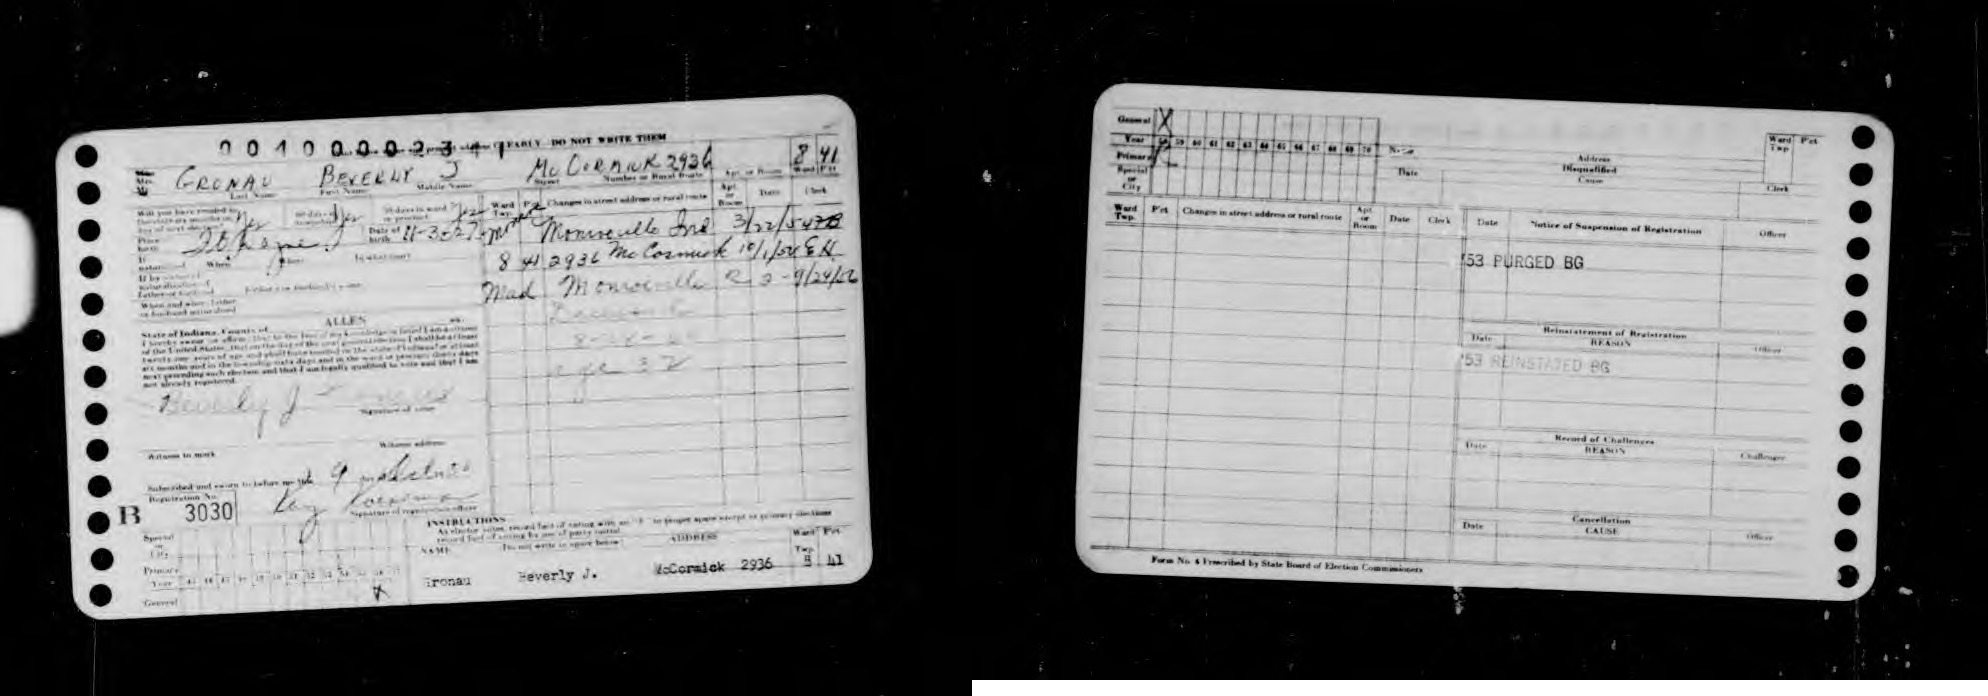 00100002341 CLEARLY DO NOT WRITE THEM
GRONAU BEVERLY J McCORMICK 2936 8 41
Last Name First Name Middle Name Street Number or Rural Route Apt. or Room Ward Pct
Will you have resided in
the state six months on Yes 60 days in Yes 30 days in ward Yes
day of next election or precinct
Place Ft Wayne Date of birth 11-3-27
birth
If
naturalized When Where In what court
If by
naturalization of
father or husband Father's or husband's name
When and where father
or husband naturalized
Ward Twp. Pct Changes in street address or rural route Apt. or Room Date Clerk
Monroe Monroeville Ind 3/22/54
8 41 2936 McCormick 10/1/54 E.H.
Mad Monroeville R 2 - 9/24/56
Deceased
8-
age 32
State of Indiana, County of ALLEN ss.
I hereby swear or affirm, that to the best of my knowledge or belief I am a citizen
of the United States, that on the day of the next general election I shall be at least
twenty-one years of age and shall have resided in the state of Indiana at least
six months and in the township sixty days and in the ward or precinct thirty days
next preceding such election and that I am legally qualified to vote and that I am
not already registered.
Beverly J
Signature of voter
Witness address
Witness to mark
Subscribed and sworn to before me this 9 day
Registration No. Kay
B 3030 Signature of registration officer
Special
or
City
Primary
Year
General X
INSTRUCTIONS
As elector votes, record fact of voting with an "X" in proper space except at primary elections
record fact of voting by use of party initial.
NAME (Do not write in space below) ADDRESS Ward Pct
Twp.
Gronau Beverly J. McCormick 2936 8 41
General X
Year 58 59 60 61 62 63 64 65 66 67 68 69 70
Primary
Special
or
City
Name Address Ward Twp Pct
Disqualified
Date Cause Clerk
Ward Twp. Pct Changes in street address or rural route Apt. or Room Date Clerk
Date Notice of Suspension of Registration Officer
'53 PURGED BG
Reinstatement of Registration
Date REASON Officer
'53 REINSTATED BG
Record of Challenges
Date REASON Challenger
Cancellation
Date CAUSE Officer
Form No. 4 Prescribed by State Board of Election Commissioners